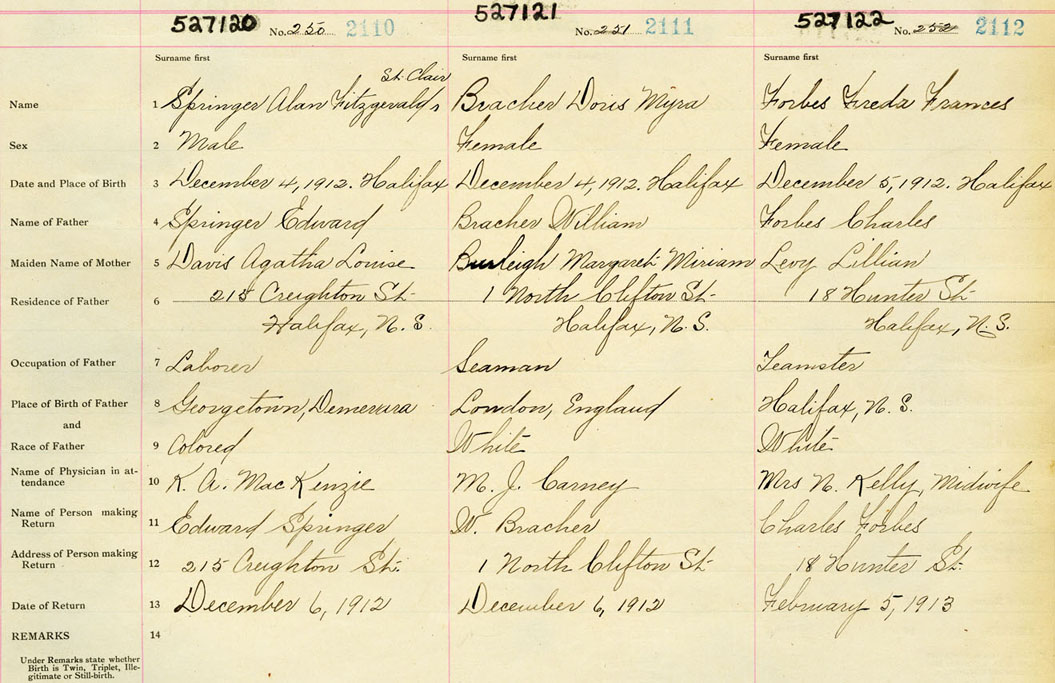 527120 No. 250 2110 527121 No. 251 2111 527122 No. 252 2112
Surname first Surname first Surname first
St. Clair
Name 1 Springer Alan Fitzgerald Bracher Doris Myra Forbes Freda Frances
Sex 2 Male Female Female
Date and Place of Birth 3 December 4, 1912. Halifax December 4, 1912. Halifax December 5, 1912. Halifax
Name of Father 4 Springer Edward Bracher William Forbes Charles
Maiden Name of Mother 5 Davis Agatha Louise Burleigh Margaret Miriam Levy Lillian
Residence of Father 6 215 Creighton St. 1 North Clifton St. 18 Hunter St.
Halifax, N. S. Halifax, N. S. Halifax, N. S.
Occupation of Father 7 Laborer Seaman Teamster
Place of Birth of Father 8 Georgetown, Demerara London, England Halifax, N. S.
and
Race of Father 9 Colored White White
Name of Physician in at-
tendance 10 K. A. MacKenzie M. J. Carney Mrs N. Kelly, Midwife
Name of Person making
Return 11 Edward Springer W. Bracher Charles Forbes
Address of Person making
Return 12 215 Creighton St. 1 North Clifton St. 18 Hunter St.
Date of Return 13 December 6, 1912 December 6, 1912 February 5, 1913
REMARKS 14
Under Remarks state whether
Birth is Twin, Triplet, Ille-
gitimate or Still-birth.